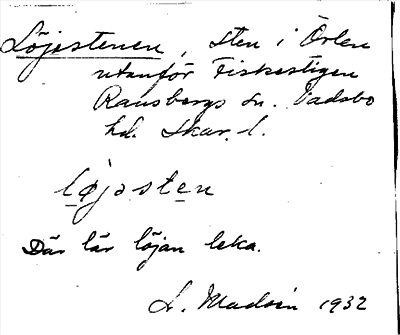 Löjestenen, sten i Örlen
utanför Fiskestigen
Ransbergs sn. Vadsbo
hd. Skar. l.
löjəsten
Där lär löjan leka.
L. Madsén 1932